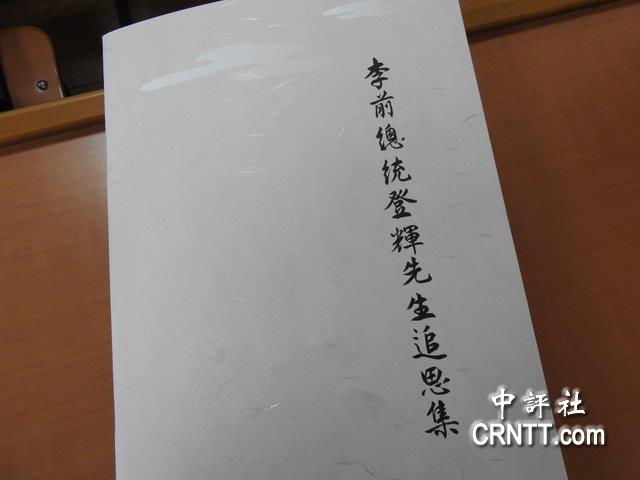 李前總統登輝先生追思集
中評社
CRNTT.com